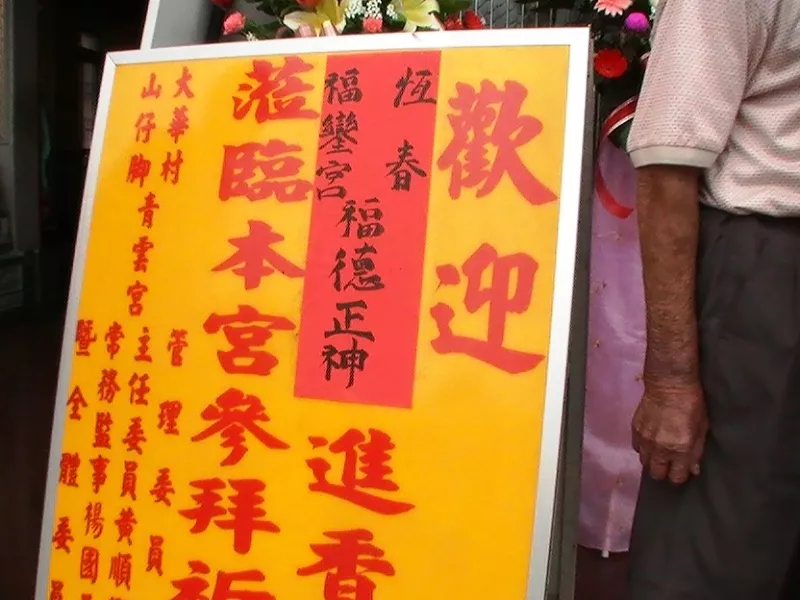 歡迎
恆春
福鑾宮
福德正神
進香
蒞臨本宮參拜
大華村
山仔脚青雲宮
管理委員
主任委員黃順
常務監事楊國
暨全體委員